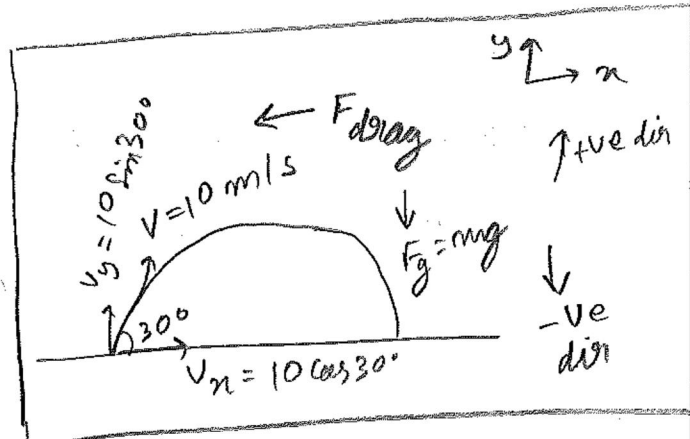 y
x
← F drag
↑+ve dir
Vy = 10 Sin30°
V=10 m/s
↓
Fg=mg
↓
-ve
dir
30°
Vx = 10 Cos30°